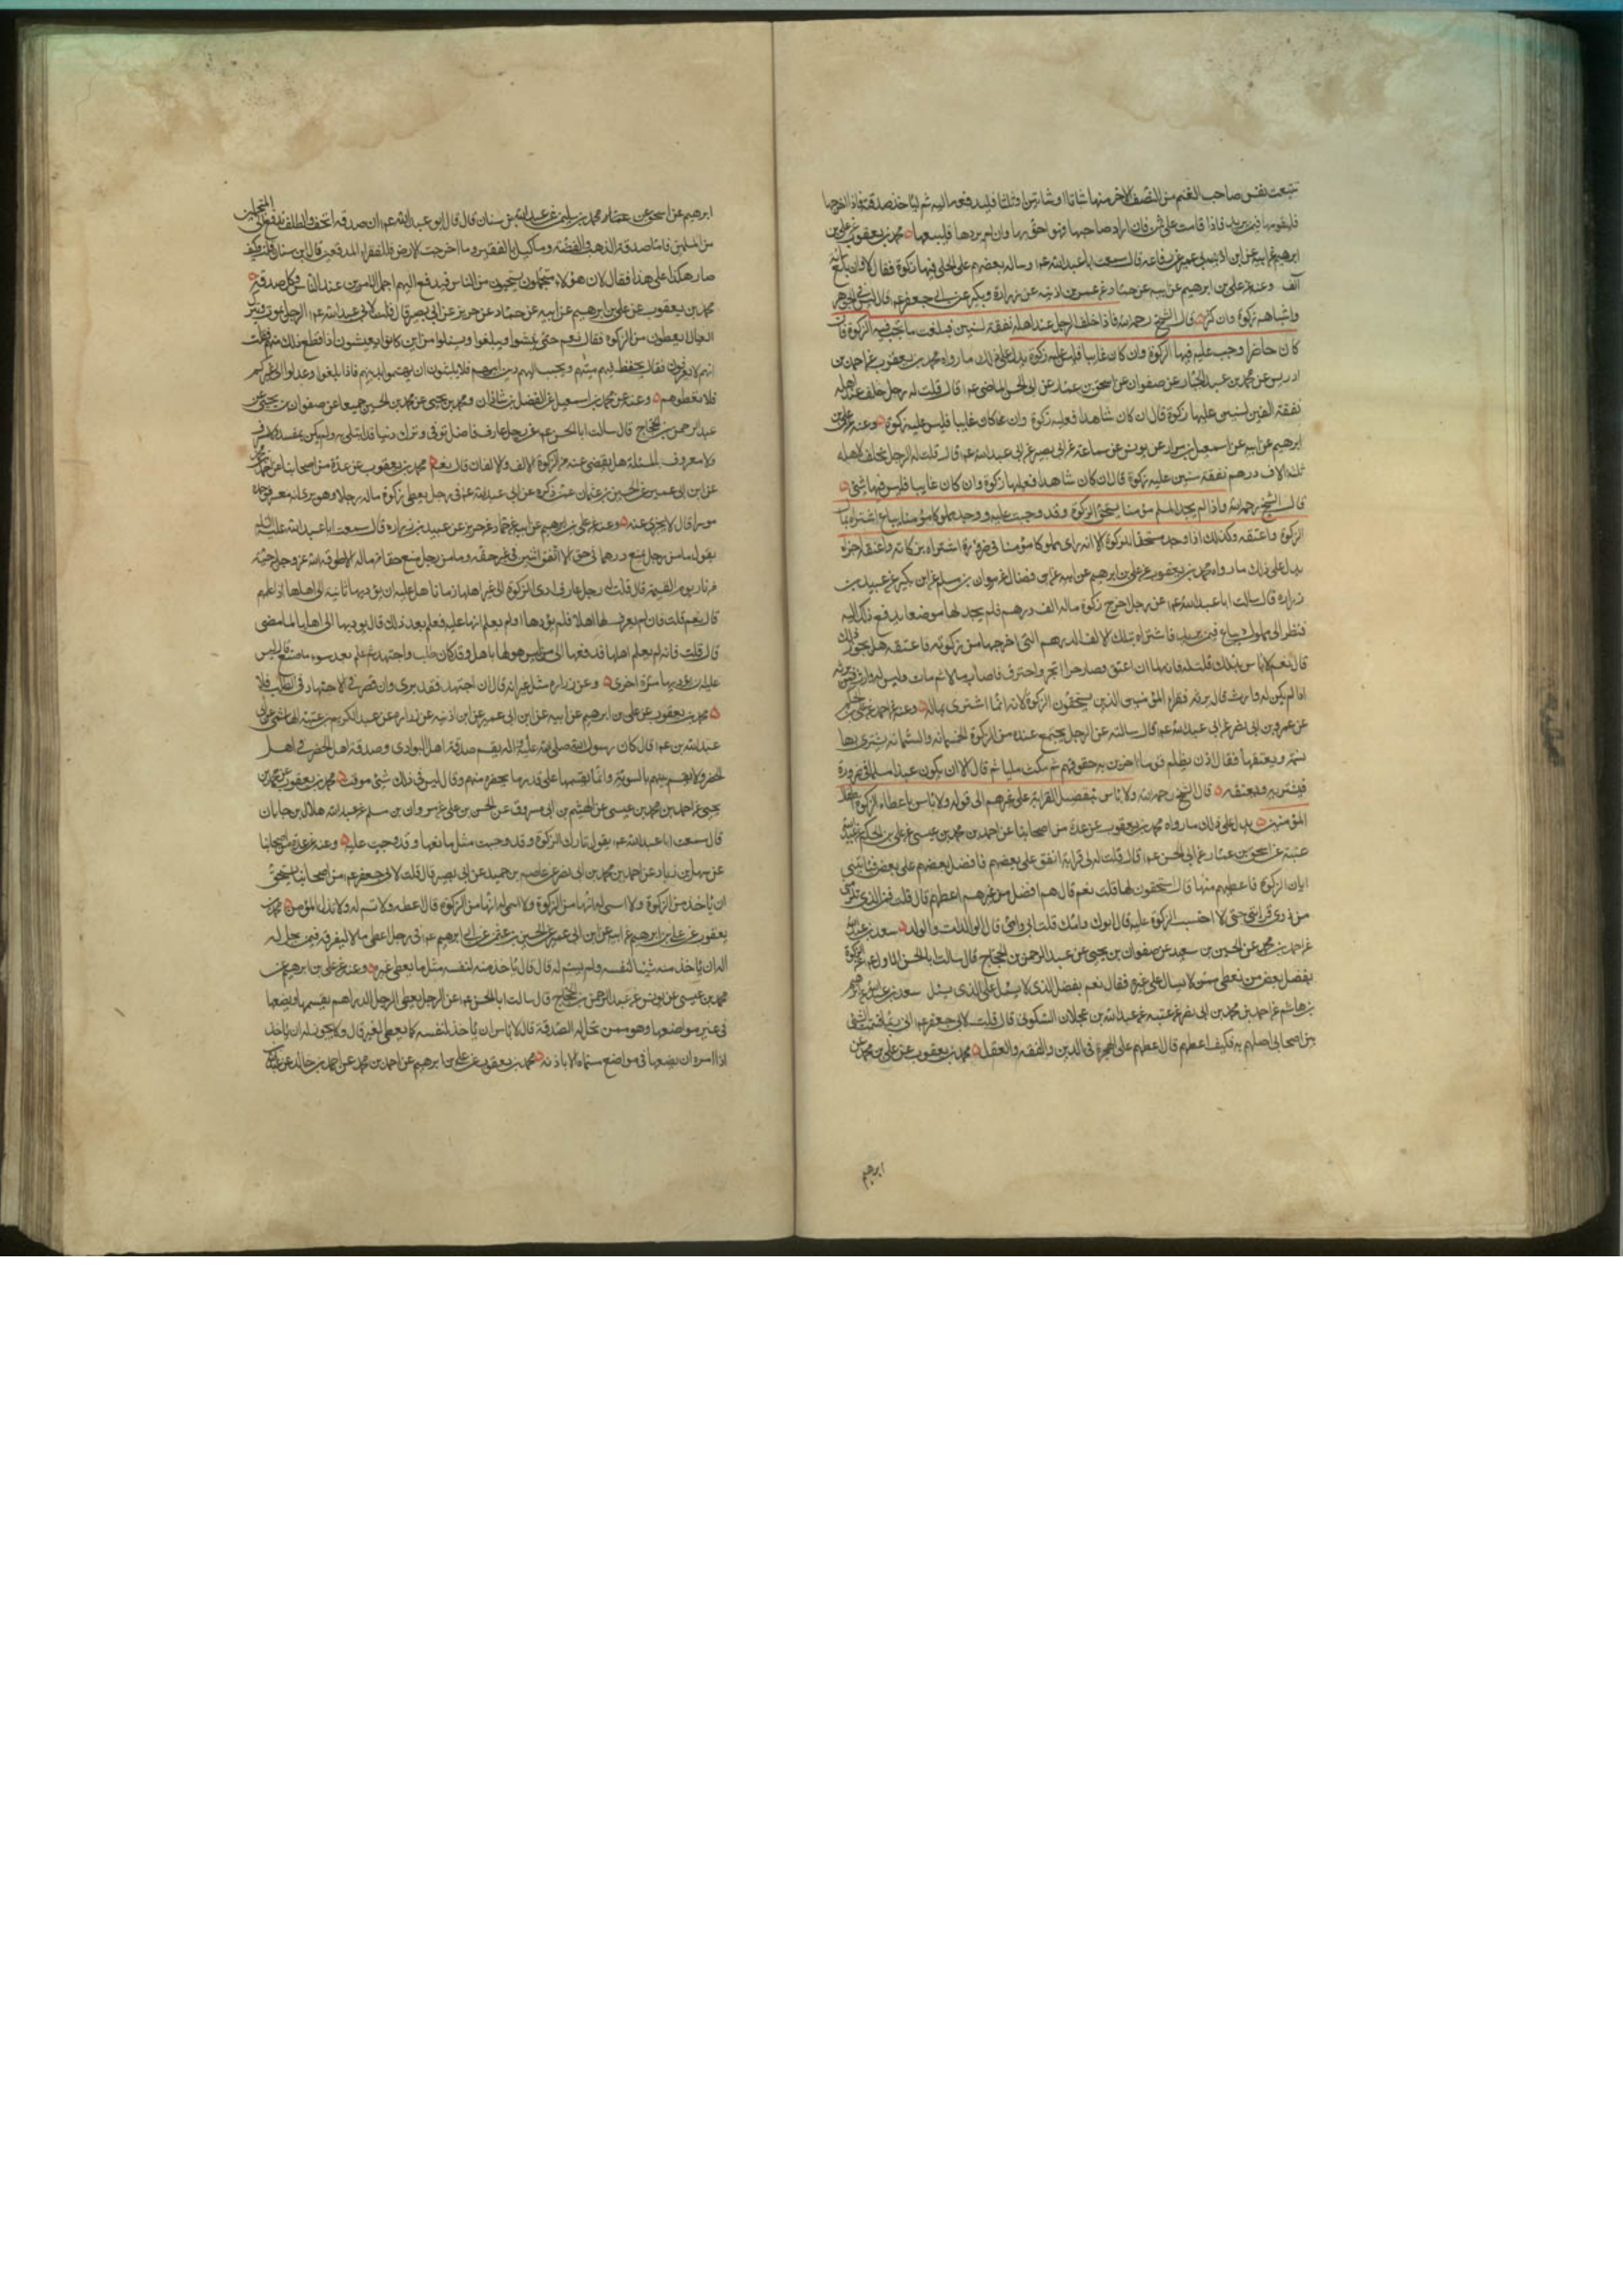 تتبعت نفس صاحب الغنم من النصف الاخر منها شاة او شاتين او ثلثا فليدفعها اليه ثم لياخذ صدقته فاذا اخرجها
فليقومها فيمن يريد فاذا قامت على ثمن فان اراد صاحبها فهو احق بها وان لم يردها فليبيعها محمد بن يعقوب عن علي بن
ابرهيم عن ابيه عن ابن ابي عمير عن رفاعه قال سمعت ابا عبد الله ع وساله بعضهم على الحلي فيها زكوة فقال لا وان بلغ مائة
الف وعنه عن علي بن ابرهيم عن ابيه عن حماد عن عمر بن اذينه عن زرارة وبكير عن ابي جعفر ع قال ليس في الجوهر
واشباهه زكوة وان كثر قال الشيخ رحمه الله فاذا خلف الرجل عند اهله نفقة لسنين فبلغت ما تجب فيه الزكوة فان
كان حاضرا وجب عليه فيها الزكوة وان كان غايبا فليس عليه زكوة يدل على ذلك ما رواه محمد بن يعقوب عن احمد بن
ادريس عن محمد بن عبد الجبار عن صفوان عن اسحق بن عمار عن ابي الحسن الماضي ع قال قلت له رجل خلف عند اهله
نفقة الفين لسنتين عليها زكوة قال ان كان شاهدا فعليه زكوة وان كان غايبا فليس عليه زكوة وعنه عن علي بن
ابرهيم عن ابيه عن اسمعيل بن مرار عن يونس عن سماعة عن ابي بصير عن ابي عبد الله ع قال قلت له الرجل يخلف لاهله
ثلثة الاف درهم نفقة سنتين عليه زكوة قال ان كان شاهدا فعليها زكوة وان كان غايبا فليس فيها شئ
قال الشيخ رحمه الله واذا لم يجد المسلم مؤمنا يستحق الزكوة وقد وجبت عليه ووجد مملوكا مؤمنا يباع اشتراه بمال
الزكوة واعتقه وكذلك اذا وجد مستحقا للزكوة الا انه راى مملوكا مؤمنا في ضرورة اشتراه بزكاته واعتقه اجزاه
يدل على ذلك ما رواه محمد بن يعقوب عن علي بن ابرهيم عن ابيه عن ابن فضال عن مروان بن مسلم عن ابن بكير عن عبيد بن
زراره قال سالت ابا عبد الله ع عن رجل اخرج زكوة ماله الف درهم فلم يجد لها موضعا يدفع ذلك اليه
فنظر الى مملوك يباع فيمن يريد فاشتراه بتلك الالف الدرهم التي اخرجها من زكوته فاعتقه هل يجوز ذلك
قال نعم لا باس بذلك قلت له فانه لما ان اعتق وصار حرا اتجر واحترف فاصاب مالا ثم مات وليس له وارث فمن يرثه
اذا لم يكن له وارث قال يرثه فقراء المؤمنين الذين يستحقون الزكوة لانه انما اشترى بمالهم وعنه عن احمد عن علي بن الحكم
عن عمرو بن ابي نصر عن ابي عبد الله ع قال سالته عن الرجل يجتمع عنده من الزكوة الخمسمائة والستمائة يشتري بها
نسمة ويعتقها فقال اذن يظلم قوما اخرين حقوقهم ثم مكث مليا ثم قال الا ان يكون عبدا مسلما في ضرورة
فيشتريه ويعتقه قال الشيخ رحمه الله ولا باس بتفضيل القرابة على غيرهم الى قوله ولا باس باعطاء الزكوة اطفال
المؤمنين يدل على ذلك ما رواه محمد بن يعقوب عن عدة من اصحابنا عن احمد بن محمد بن عيسى عن علي بن الحكم عن عبد الملك بن
عتبة عن اسحق بن عمار عن ابي الحسن ع قال قلت له لي قرابة انفق على بعضهم فافضل بعضهم على بعض فياتيني
ابان الزكوة فاعطيهم منها قال استحقون لها قلت نعم قال هم افضل من غيرهم اعطهم قال قلت فمن الذي يلزمني
من ذوي قرابتي حتى لا احتسب الزكوة عليه قال ابوك وامك قلت ابي وامي قال الوالدان والولد سعد بن عبد الله
عن احمد بن محمد عن الحسين بن سعيد عن صفوان بن يحيى عن عبد الرحمن بن الحجاج قال سالت ابا الحسن الاول ع عن الزكوة
يفضل بعض من يعطى ممن لا يسال على غيره فقال نعم يفضل الذي لا يسئل على الذي يسئل سعد عن ابرهيم
بن هاشم عن احمد بن محمد بن ابي نصر عن عتيبه عن عبد الله بن عجلان السكوني قال قلت لابي جعفر ع اني ربما قسمت الشئ
بين اصحابي اصلهم به فكيف اعطيهم قال اعطهم على الهجرة في الدين والفقه والعقل محمد بن يعقوب عن علي بن محمد عن
ابرهيم
ابرهيم عن اسحق عن محمد بن سليمن عن عبد الله بن سنان قال قال ابو عبد الله ع ان صدقه الخف والظلف تدفع الى المتجملين
من المسلمين فاما صدقة الذهب والفضه وما كيل بالقفيز وما اخرجت الارض فللفقراء المدقعين قال ابن سنان قلت وكيف
صار هكذا على هذا فقال لان هؤلاء متجملون يستحيون من الناس فيدفع اليهم اجمل الامرين عند الناس وكل صدقة
محمد بن يعقوب عن علي بن ابرهيم عن ابيه عن حماد عن حريز عن ابي بصير قال قلت لابي عبد الله ع الرجل يموت ويترك
العيال ايعطون من الزكوة فقال نعم حتى ينشوا ويبلغوا ويسئلوا من اين كانوا يعيشون اذا قطع ذلك عنهم فقلت
انهم لا يعرفون فقال يحفظ فيهم ميتهم ويحبب اليهم دين ابيهم فلا يلبثون ان يهتموا بدين ابيهم فاذا بلغوا وعدلوا الى غيركم
فلا تعطوهم وعنه عن محمد بن اسمعيل عن الفضل بن شاذان ومحمد بن يحيى عن محمد بن الحسين جميعا عن صفوان بن يحيى عن
عبد الرحمن بن الحجاج قال سالت ابا الحسن ع عن رجل عارف فاضل توفي وترك دينا قد ابتلى به ولم يكن بمفسد ولا مسرف
ولا معروف بالمسئلة هل يقضى عنه من الزكوة الالف والالفان قال نعم محمد بن يعقوب عن عدة من اصحابنا عن احمد بن محمد
عن ابن ابي عمير عن الحسين بن عثمان عمن ذكره عن ابي عبد الله ع في رجل يعطي زكوة ماله رجلا وهو يرى انه معسر فوجده
موسرا قال لا يجزي عنه وعنه عن علي بن ابرهيم عن ابيه عن حماد عن حريز عن عبيد بن زراره قال سمعت ابا عبد الله عليه السلام
يقول ما من رجل يمنع درهما في حق الا انفق اثنين في غير حقه وما من رجل يمنع حقا في ماله الا طوقه الله عز وجل حية
من نار يوم القيمة قال قلت له رجل عارف ادى الزكوة الى غير اهلها زمانا هل عليه ان يؤديها ثانية الى اهلها اذا علمهم
قال نعم قلت فان لم يعرف لها اهلا فلم يؤدها او لم يعلم انها عليه فعلم بعد ذلك قال يؤديها الى اهلها لما مضى
قال قلت فانه لم يعلم اهلها فدفعها الى من ليس هو لها باهل وقد كان طلب واجتهد ثم علم بعد سوء ما صنع قال ليس
عليه ان يؤديها مرة اخرى وعن زراره مثله غير انه قال ان اجتهد فقد برئ وان قصر في الاجتهاد في الطلب فلا
محمد بن يعقوب عن علي بن ابرهيم عن ابيه عن ابن ابي عمير عن ابن اذينه عن زراره عن عبد الكريم بن عتبة الهاشمي عن ابي
عبد الله ع قال كان رسول الله صلى الله عليه واله يقسم صدقة اهل البوادي وصدقة اهل الحضر في اهل
الحضر ولا يقسم بينهم بالسوية وانما يقسمها على قدر ما يحضره منهم وقال ليس في ذلك شئ موقت محمد بن يعقوب عن محمد بن
يحيى عن احمد بن محمد بن عيسى عن الهيثم بن ابي مسروق عن الحسن بن علي عن مروان بن مسلم عن عبد الله هلال بن خاقان
قال سمعت ابا عبد الله ع يقول تارك الزكوة وقد وجبت مثل مانعها وقد وجبت عليه وعنه عن عدة من اصحابنا
عن سهل بن زياد عن احمد بن محمد بن ابي نصر عن عاصم بن حميد عن ابي بصير قال قلت لابي جعفر ع من اصحابنا يستحيى
ان ياخذ من الزكوة فاعطيه من الزكوة ولا اسمي له انها من الزكوة قال اعطه ولا تسم له ولا تذل المؤمن محمد بن
يعقوب عن علي بن ابرهيم عن ابيه عن ابن ابي عمير عن الحسين بن عثمن عن ابي ابرهيم ع في رجل اعطي مالا ليفرقه فيمن يحل له
اله ان ياخذ منه شيئا لنفسه ولم يسم له قال قال ياخذ منه لنفسه مثل ما يعطي غيره وعنه عن علي بن ابرهيم عن
محمد بن عيسى عن يونس عن عبد الرحمن بن الحجاج قال سالت ابا الحسن ع عن الرجل يعطي الرجل الدراهم يقسمها ويضعها
في غير مواضعها وهو ممن تحل له الصدقة قال لا باس ان ياخذ لنفسه كما يعطي لغيره قال ولا يجوز له ان ياخذ
اذا امره ان يضعها في مواضع مسماه الا باذنه محمد بن يعقوب عن علي بن ابرهيم عن احمد بن محمد عن احمد بن خالد عن